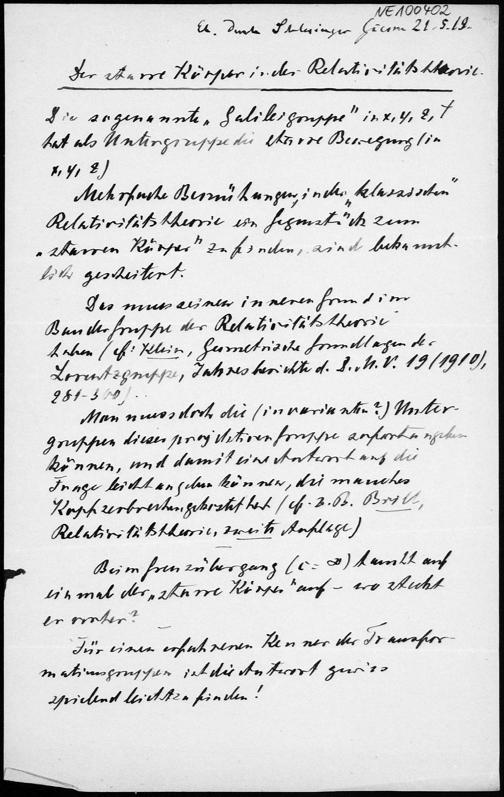 NE100402
Schlesinger Giessen 21.5.19.
Der starre Körper in der Relativitätstheorie.
Die sogenannte „Galileigruppe" in x, y, z, t
hat als Untergruppe die starre Bewegung (in
x, y, z)
Mehrfache Bemühungen, in der „klassischen"
Relativitätstheorie ein Gegenstück zum
„starren Körper" zu finden, sind bekannt-
lich gescheitert.
Das muss seinen inneren Grund im
Bau der Gruppe der Relativitätstheorie
haben (cf. Klein, Geometrische Grundlagen der
Lorentzgruppe, Jahresberichte d. D. M. V. 19 (1910),
281-300).
Man muss doch die (invarianten?) Unter-
gruppen dieser projektiven Gruppe sofort angeben
können, und damit eine Antwort auf die
Frage leicht angeben können, die manches
Kopfzerbrechen gekostet hat (cf. z. B. Brill,
Relativitätstheorie, zweite Auflage)
Beim Grenzübergang (c = ∞) taucht auf
einmal der „starre Körper" auf – wo steckt
er vorher?
Für einen erfahrenen Kenner der Transfor-
mationsgruppen ist die Antwort gewiss
spielend leicht zu finden!